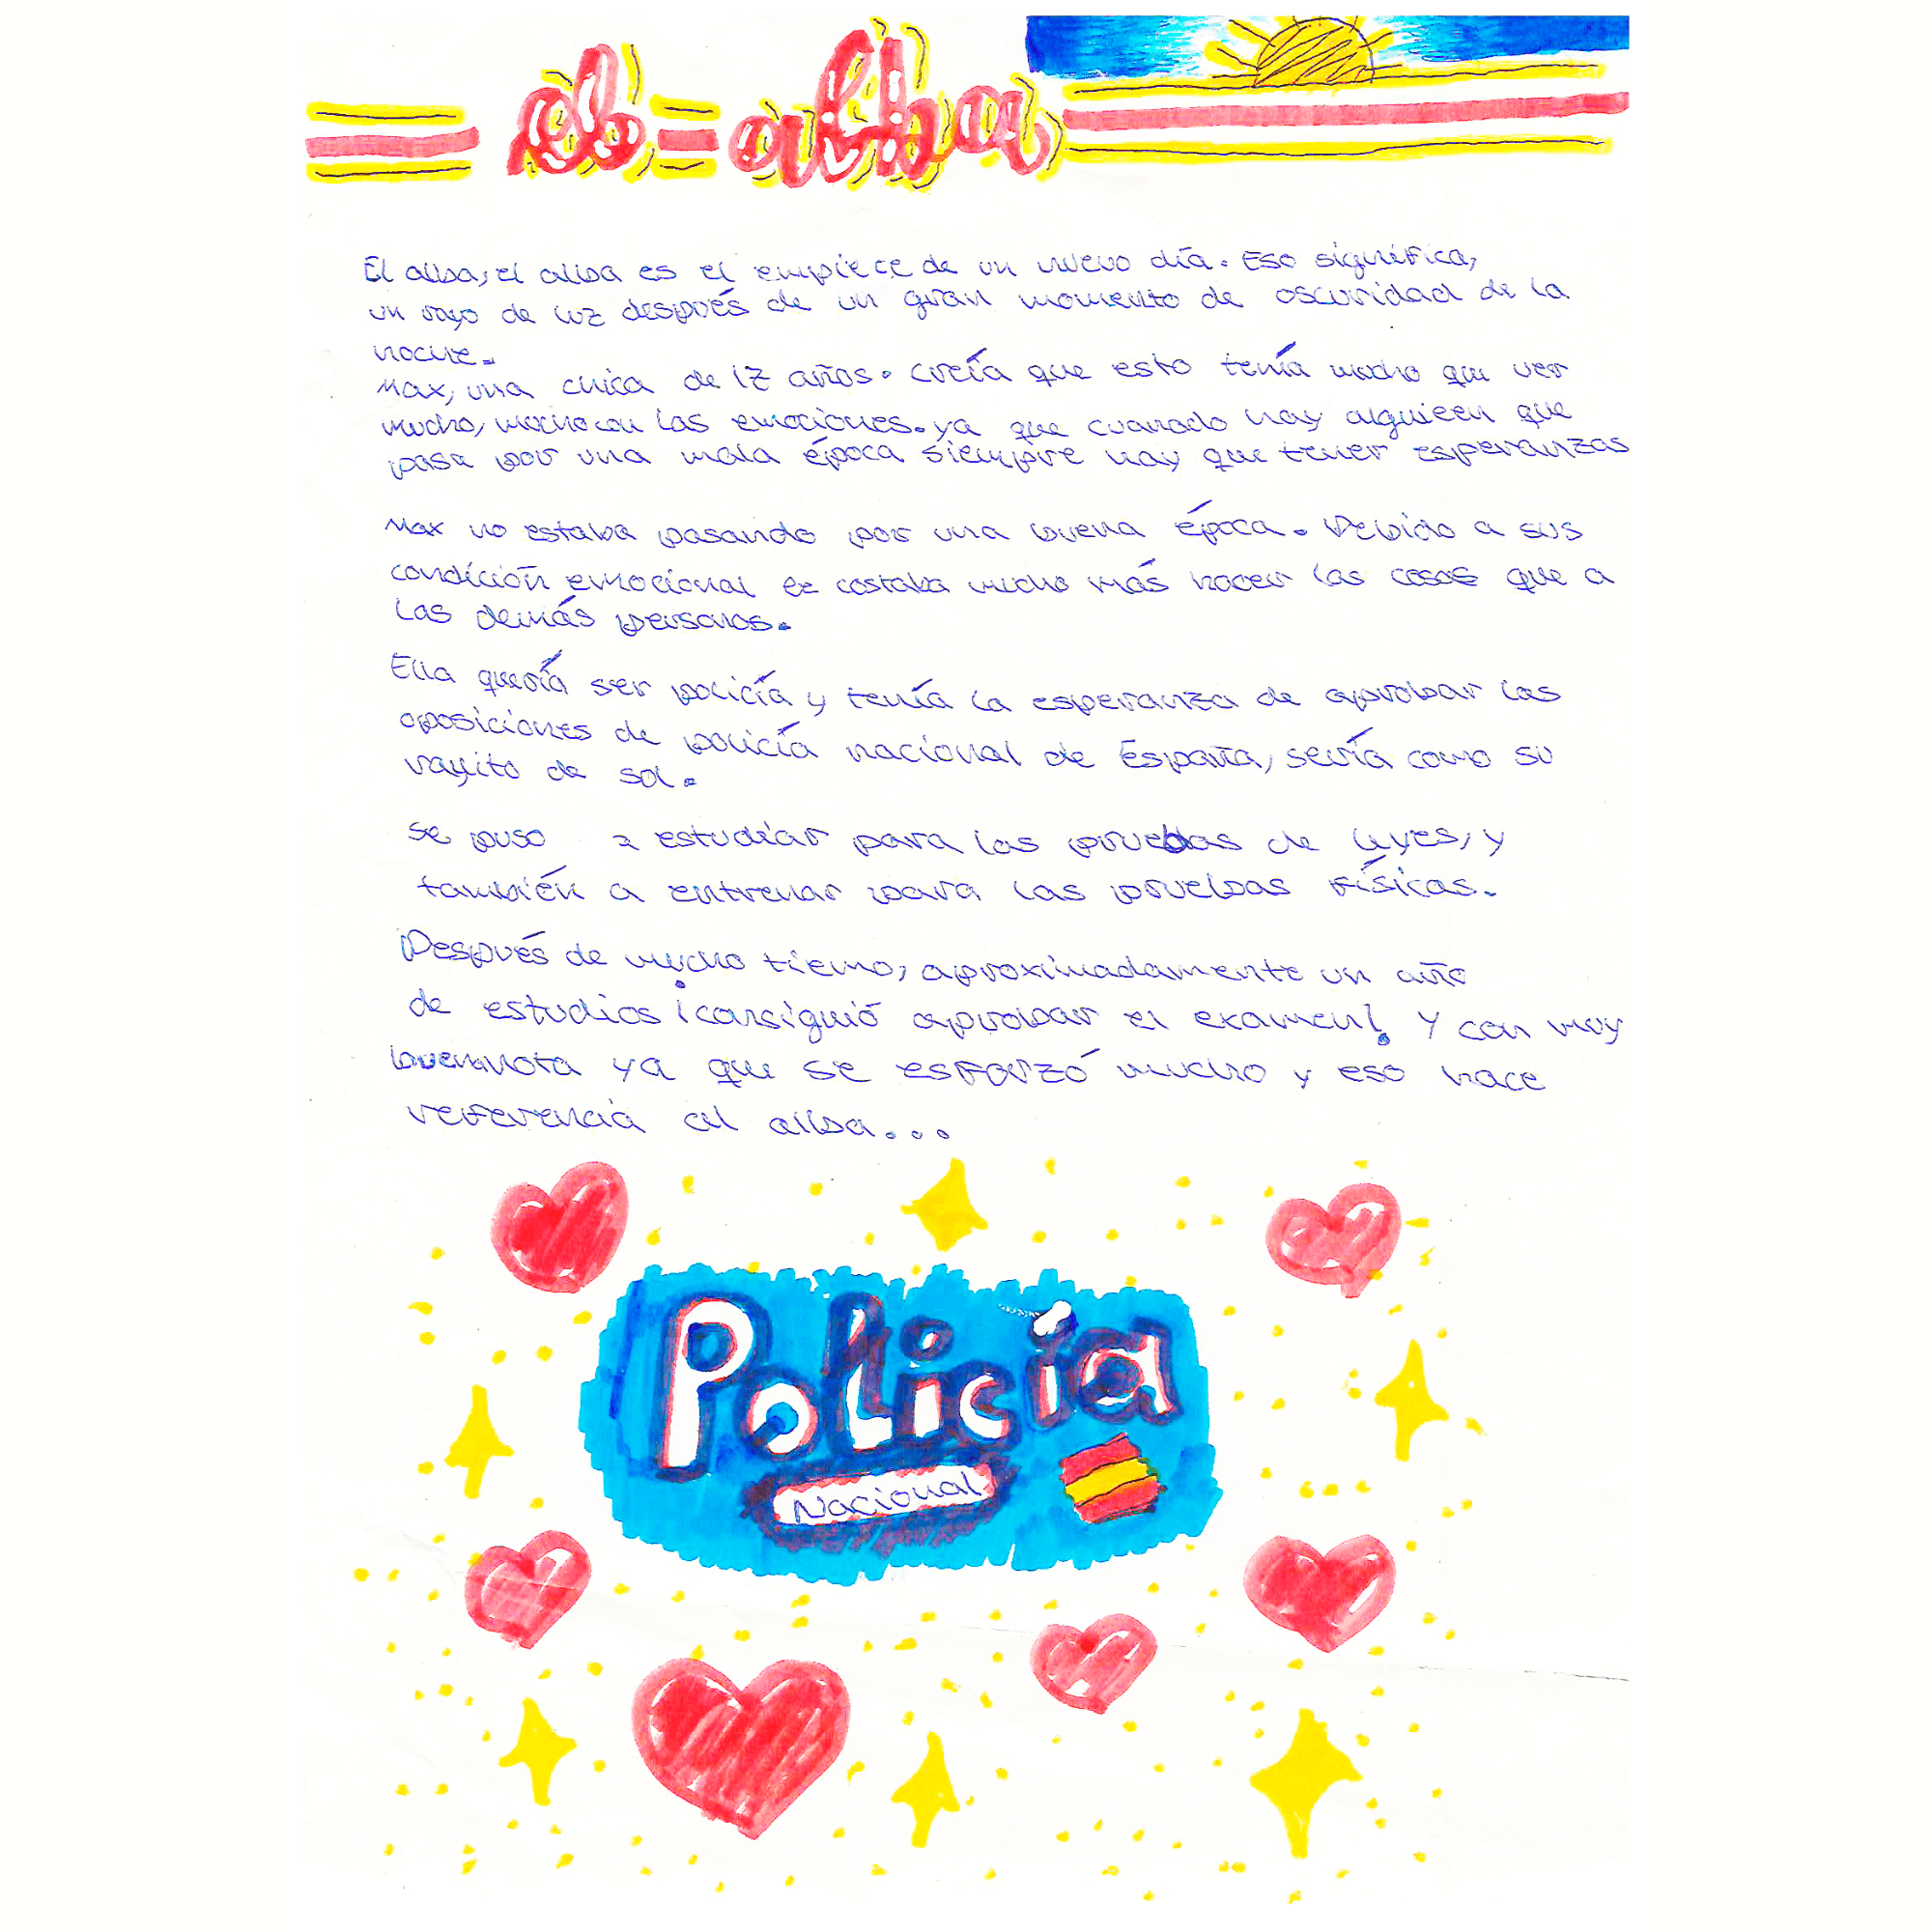 el = alba
El alba, el alba es el empiece de un nuevo día. Eso significa,
un rayo de luz después de un gran momento de oscuridad de la
noche.
Max, una chica de 17 años. Creía que esto tenía mucho que ver
mucho, mucho con las emociones. ya que cuando hay alguieen que
pasa por una mala época siempre hay que tener esperanzas
Max no estaba pasando por una buena época. Debido a sus
condición emocional le costaba mucho más hacer las cosas que a
las demás personas.
Ella quería ser policía y tenía la esperanza de aprobar las
oposiciones de policía nacional de España, sería como su
rayito de sol.
Se puso a estudiar para las pruebas de leyes, y
también a entrenar para las pruebas físicas.
Después de mucho tiemo, aproximadamente un año
de estudios ¡consiguió aprobar el examen! Y con muy
buena nota ya que se esforzó mucho y eso hace
referencia al alba...
Policía
Nacional